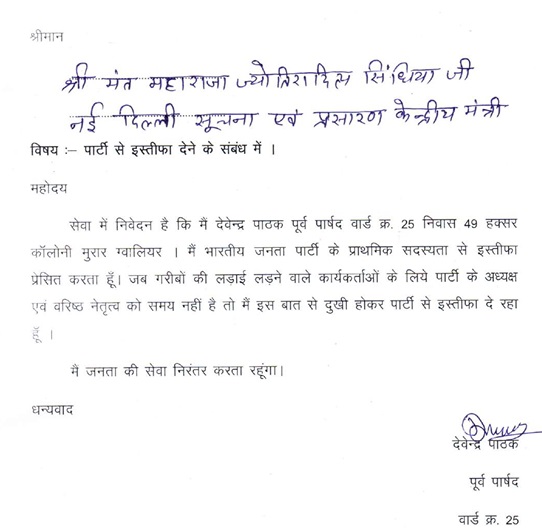 श्रीमान
श्री मंत महाराजा ज्योतिरादित्य सिंधिया जी
नई दिल्ली सूचना एवं प्रसारण केन्द्रीय मंत्री
विषय :– पार्टी से इस्तीफा देने के संबंध में ।
महोदय
सेवा में निवेदन है कि मैं देवेन्द्र पाठक पूर्व पार्षद वार्ड क्र. 25 निवास 49 हक्सर
कॉलोनी मुरार ग्वालियर । मैं भारतीय जनता पार्टी के प्राथमिक सदस्यता से इस्तीफा
प्रेसित करता हूँ। जब गरीबों की लड़ाई लड़ने वाले कार्यकर्ताओं के लिये पार्टी के अध्यक्ष
एवं वरिष्ठ नेतृत्व को समय नहीं है तो मैं इस बात से दुखी होकर पार्टी से इस्तीफा दे रहा
हूँ ।
मै जनता की सेवा निरंतर करता रहूंगा।
धन्यवाद
देवेन्द्र पाठक
पूर्व पार्षद
वार्ड क्र. 25